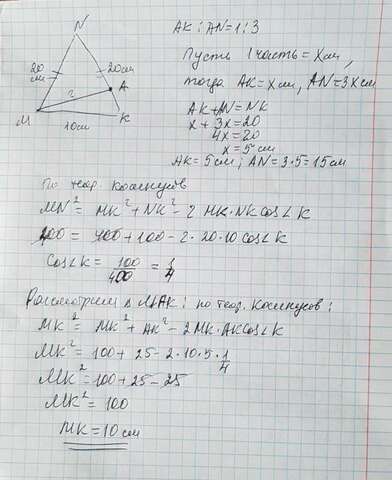 N
20 см
20 см
A
?
M
10 см
K
AK : AN = 1 : 3
Пусть 1 часть = x см,
тогда AK = x см, AN = 3x см
AK + AN = NK
x + 3x = 20
4x = 20
x = 5 см
AK = 5 см; AN = 3·5 = 15 см
По теор. косинусов
MN² = MK² + NK² - 2 MK · NK cos∠K
400 = 400 + 100 - 2 · 20 · 10 cos∠K
cos∠K = 100/400 = 1/4
Рассмотрим Δ MAK: по теор. косинусов:
MK² = MK² + AK² - 2MK · AK cos∠K
MK² = 100 + 25 - 2 · 10 · 5 · 1/4
MK² = 100 + 25 - 25
MK² = 100
MK = 10 см